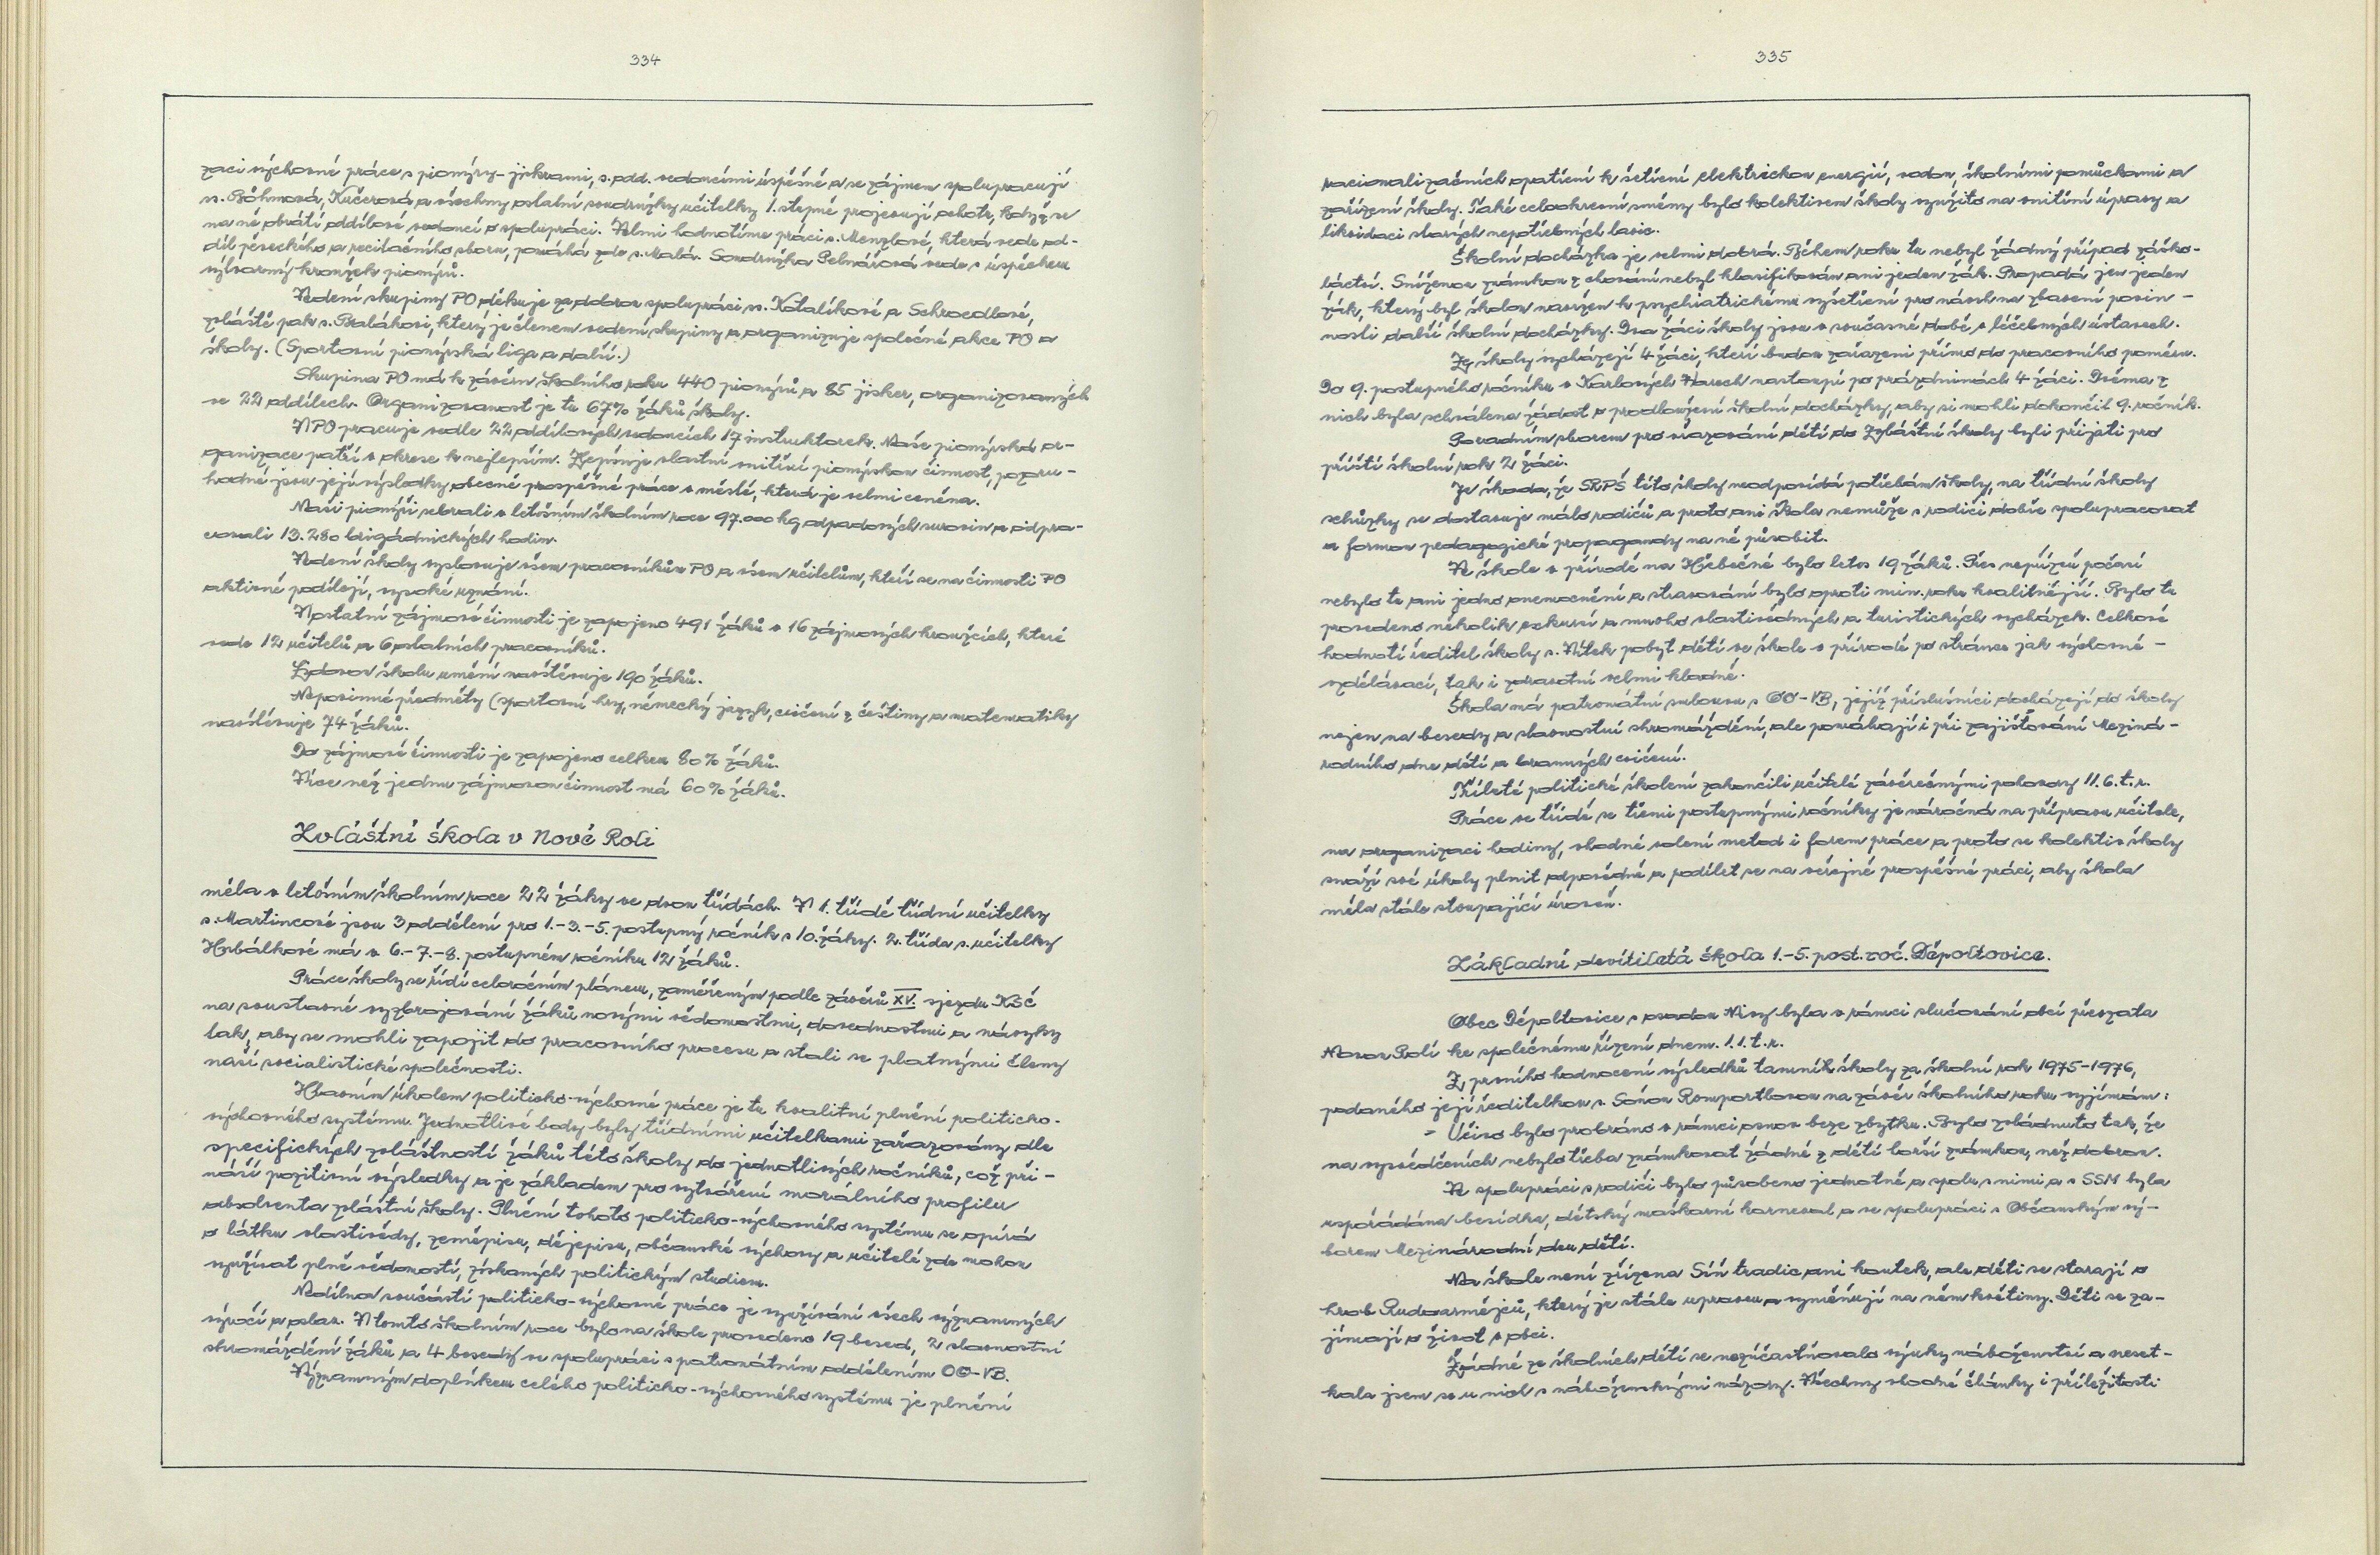 334
zaci výchovné práce s pionýry-jiskrami, s. odd. vedoucími úspěšně a se zájmem spolupracují
ss. Böhmová, Kučerová a všechny ostatní soudružky učitelky 1. stupně projevují ochotu, když se
na ně obrátí oddílové vedoucí o spolupráci. Velmi hodnotíme práci s. Menzlové, která vede od-
díl pěveckého a recitačního sboru, pomáhá zde s. Malá. Soudružka Pelnářová vede s úspěchem
výtvarný kroužek pionýrů.
Vedení skupiny PO děkuje za dobrou spolupráci ss. Katalíkové a Schroedlové,
zvláště pak s. Balákovi, který je členem vedení skupiny a organizuje společné akce PO a
školy. (Sportovní pionýrská liga a další.)
Skupina PO má k závěru školního roku 440 pionýrů a 85 jisker, organizovaných
ve 22 oddílech. Organizovanost je tu 67% žáků školy.
V PO pracuje vedle 22 oddílových vedoucích 17 instruktorek. Naše pionýrská or-
ganizace patří v okrese k nejlepším. Zlepšuje vlastní vnitřní pionýrskou činnost, pozoru-
hodné jsou její výsledky obecně prospěšné práce v městě, která je velmi ceněna.
Naši pionýři sebrali v letošním školním roce 97.000 kg odpadových surovin a odpra-
covali 13.280 brigádnických hodin.
Vedení školy vyslovuje všem pracovníkům PO a všem učitelům, kteří se na činnosti PO
aktivně podílejí, vysoké uznání.
V ostatní zájmové činnosti je zapojeno 491 žáků v 16 zájmových kroužcích, které
vede 12 učitelů a 6 ostatních pracovníků.
Lidovou školu umění navštěvuje 190 žáků.
Nepovinné předměty (sportovní hry, německý jazyk, cvičení z češtiny a matematiky
navštěvuje 74 žáků.
Do zájmové činnosti je zapojeno celkem 80% žáků.
Více než jednu zájmovou činnost má 60% žáků.
Zvláštní škola v Nové Roli
měla v letošním školním roce 22 žáky ve dvou třídách. V 1. třídě třídní učitelky
s. Martincové jsou 3 oddělení pro 1.-3.-5. postupný ročník s 10. žáky. 2. třída s. učitelky
Hrbálkové má v 6.-7.-8. postupném ročníku 12 žáků.
Práce školy se řídí celoročním plánem, zaměřeným podle závěrů XV. sjezdu KSČ
na soustavné vyzbrojování žáků novými vědomostmi, dovednostmi a návyky
tak, aby se mohli zapojit do pracovního procesu a stali se platnými členy
naší socialistické společnosti.
Hlavním úkolem politicko-výchovné práce je tu kvalitní plnění politicko-
výchovného systému. Jednotlivé body byly třídními učitelkami zařazovány dle
specifických zvláštností žáků této školy do jednotlivých ročníků, což při-
náší pozitivní výsledky a je základem pro vytváření morálního profilu
absolventa zvláštní školy. Plnění tohoto politicko-výchovného systému se opírá
o látku vlastivědy, zeměpisu, dějepisu, občanské výchovy a učitelé zde mohou
využívat plně vědomostí, získaných politickým studiem.
Nedílnou součástí politicko-výchovné práce je využívání všech významných
výročí a oslav. V tomto školním roce bylo na škole provedeno 19 besed, 2 slavnostní
shromáždění žáků a 4 besedy ve spolupráci s patronátním oddělením OO-VB.
Významným doplňkem celého politicko-výchovného systému je plnění
335
racionalizačních opatření k šetření elektrickou energií, vodou, školními pomůckami a
zařízení školy. Také celookresní směny bylo kolektivem školy využito na vnitřní úpravy a
likvidaci starých nepotřebných lavic.
Školní docházka je velmi dobrá. Během roku tu nebyl žádný případ záško-
láctví. Sníženou známkou z chování nebyl klasifikován ani jeden žák. Propadá jen jeden
žák, který byl školou navržen k psychiatrickému vyšetření pro návrh na zbavení povin-
nosti další školní docházky. Dva žáci školy jsou v současné době v léčebných ústavech.
Ze školy vycházejí 4 žáci, kteří budou zařazeni přímo do pracovního poměru.
Do 9. postupného ročníku v Karlových Varech nastoupí po prázdninách 4 žáci. Dvěma z
nich byla schválena žádost o prodloužení školní docházky, aby si mohli dokončit 9. ročník.
Poradním sborem pro vřazování dětí do Zvláštní školy byli přijati pro
příští školní rok 2 žáci.
Je škoda, že SRPŠ této školy neodpovídá potřebám školy, na třídní školy
schůzky se dostavuje málo rodičů a proto ani škola nemůže s rodiči dobře spolupracovat
a formou pedagogické propagandy na ně působit.
Ve škole v přírodě na Hřebečné bylo letos 19 žáků. Přes nepřízeň počasí
nebylo tu ani jedno onemocnění a stravování bylo oproti min. roku kvalitnější. Bylo tu
provedeno několik exkursí a mnoho vlastivědných a turistických vycházek. Celkově
hodnotí ředitel školy s. Vítek pobyt dětí ve škole v přírodě po stránce jak výchovně-
vzdělávací, tak i zdravotní velmi kladně.
Škola má patronátní smlouvu s OO-VB, jejíž příslušníci docházejí do školy
nejen na besedy a slavnostní shromáždění, ale pomáhají i při zajišťování Meziná-
rodního dne dětí a branných cvičení.
Tříleté politické školení zakončili učitelé závěrečnými pohovory 11. 6. t. r.
Práce ve třídě se třemi postupnými ročníky je náročná na přípravu učitele,
na organizaci hodiny, vhodné volení metod i forem práce a proto se kolektiv školy
snaží své úkoly plnit odpovědně a podílet se na veřejně prospěšné práci, aby škola
měla stále stoupající úroveň.
Základní devítiletá škola 1.-5. post. roč. Děpoltovice.
Obec Děpoltovice s osadou Nivy byla v rámci slučování obcí převzata
Novou Rolí ke společnému řízení dnem. 1. 1. t. r.
Z prvního hodnocení výsledků tamních školy za školní rok 1975-1976,
podaného její ředitelkou s. Soňou Romportlovou na závěr školního roku vyjímám:
- Učivo bylo probráno v rámci osnov beze zbytku. Bylo zvládnuto tak, že
na vysvědčeních nebylo třeba známkovat žádné z dětí horší známkou, než dobrou.
Ve spolupráci s rodiči bylo působeno jednotně a spolu s nimi a s SSM byla
uspořádána besídka, dětský maškarní karneval a ve spolupráci s Občanským vý-
borem Mezinárodní den dětí.
Na škole není zřízena Síň tradic ani koutek, ale děti se starají o
hrob Rudoarmějců, který je stále upraven a vyměňují na něm květiny. Děti se za-
jímají o život v obci.
Žádné ze školních dětí se nezúčastňovalo výuky náboženství a neset-
kala jsem se u nich s náboženskými názory. Všechny vhodné články i příležitosti